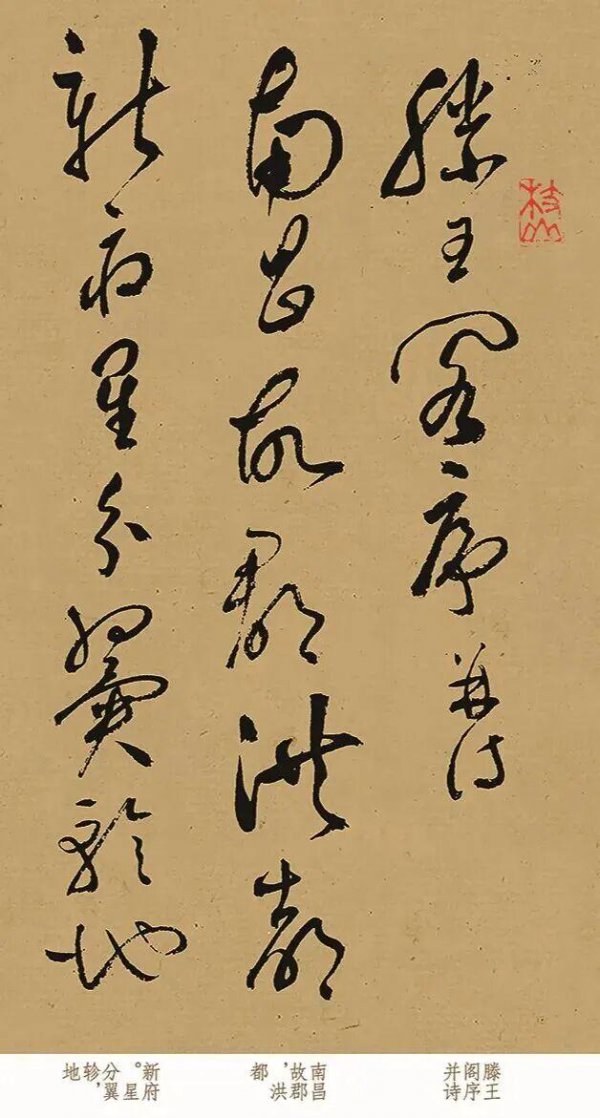 滕王阁序并诗
南昌故郡洪都
新府星分翼轸地
枝山
滕王
阁序
并诗
南昌
故郡,
洪
都
新府
。星
分翼
轸,
地